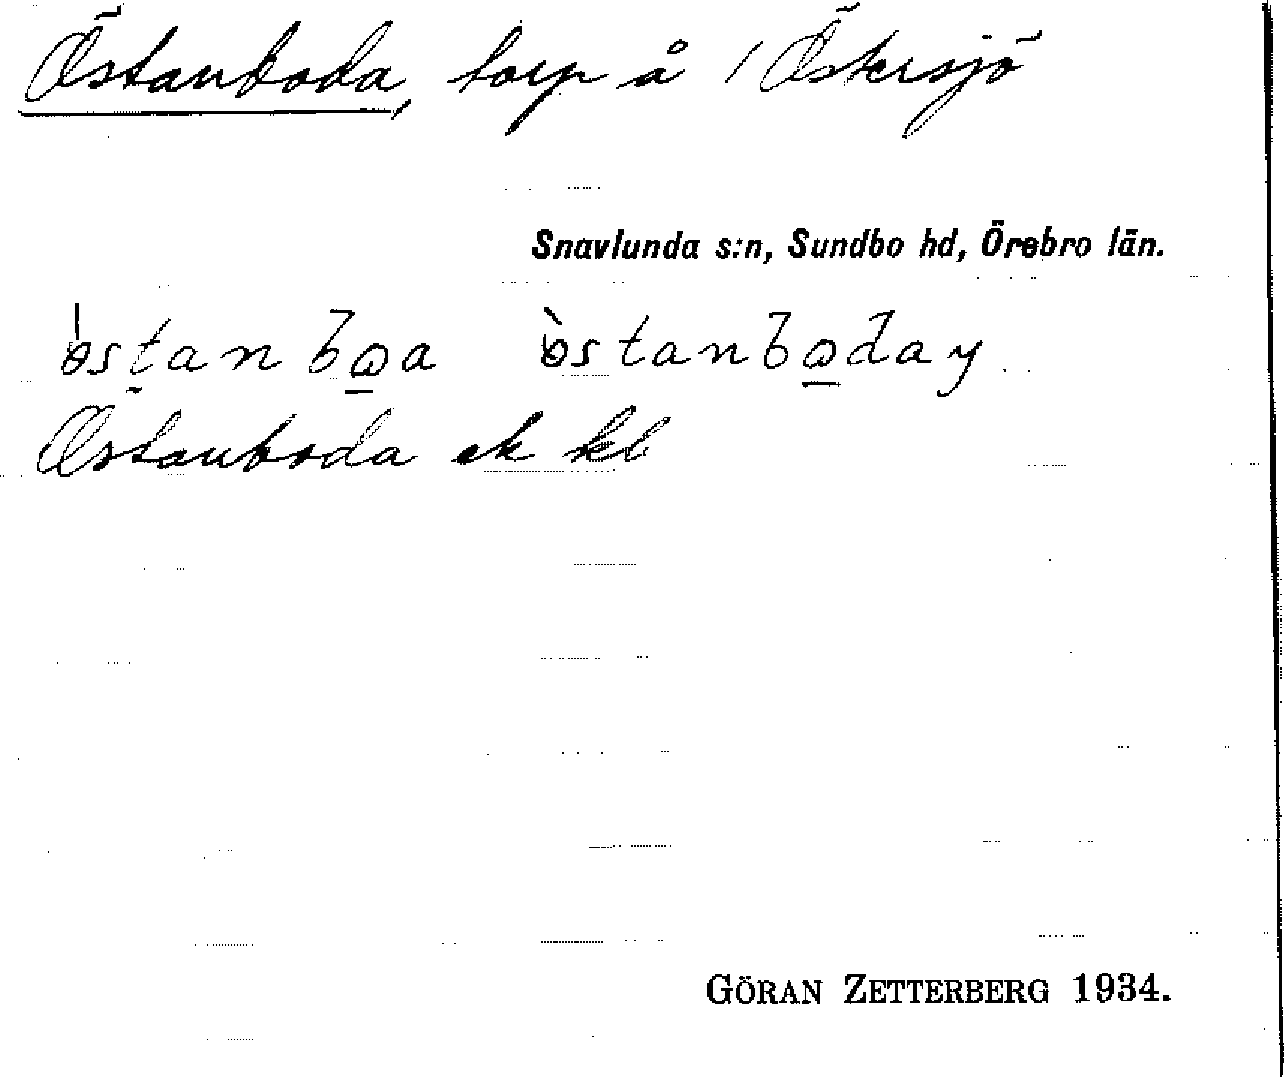 Östanboda, torp å 1 Östersjö
Snavlunda s:n, Sundbo hd, Örebro län.
ɵ̀stanbɷa ɵ̀stanbɷday
Östanboda ek kl
GÖRAN ZETTERBERG 1934.